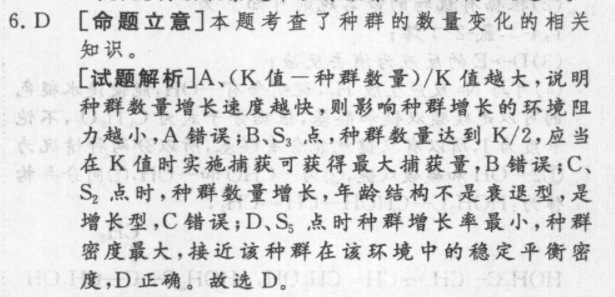 6. D [命题立意]本题考查了种群的数量变化的相关
知识。
[试题解析]A、(K 值－种群数量)/K 值越大,说明
种群数量增长速度越快,则影响种群增长的环境阻
力越小,A 错误;B、S₃ 点,种群数量达到 K/2,应当
在 K 值时实施捕获可获得最大捕获量,B 错误;C、
S₂ 点时,种群数量增长,年龄结构不是衰退型,是
增长型,C 错误;D、S₅ 点时种群增长率最小,种群
密度最大,接近该种群在该环境中的稳定平衡密
度,D 正确。故选 D。